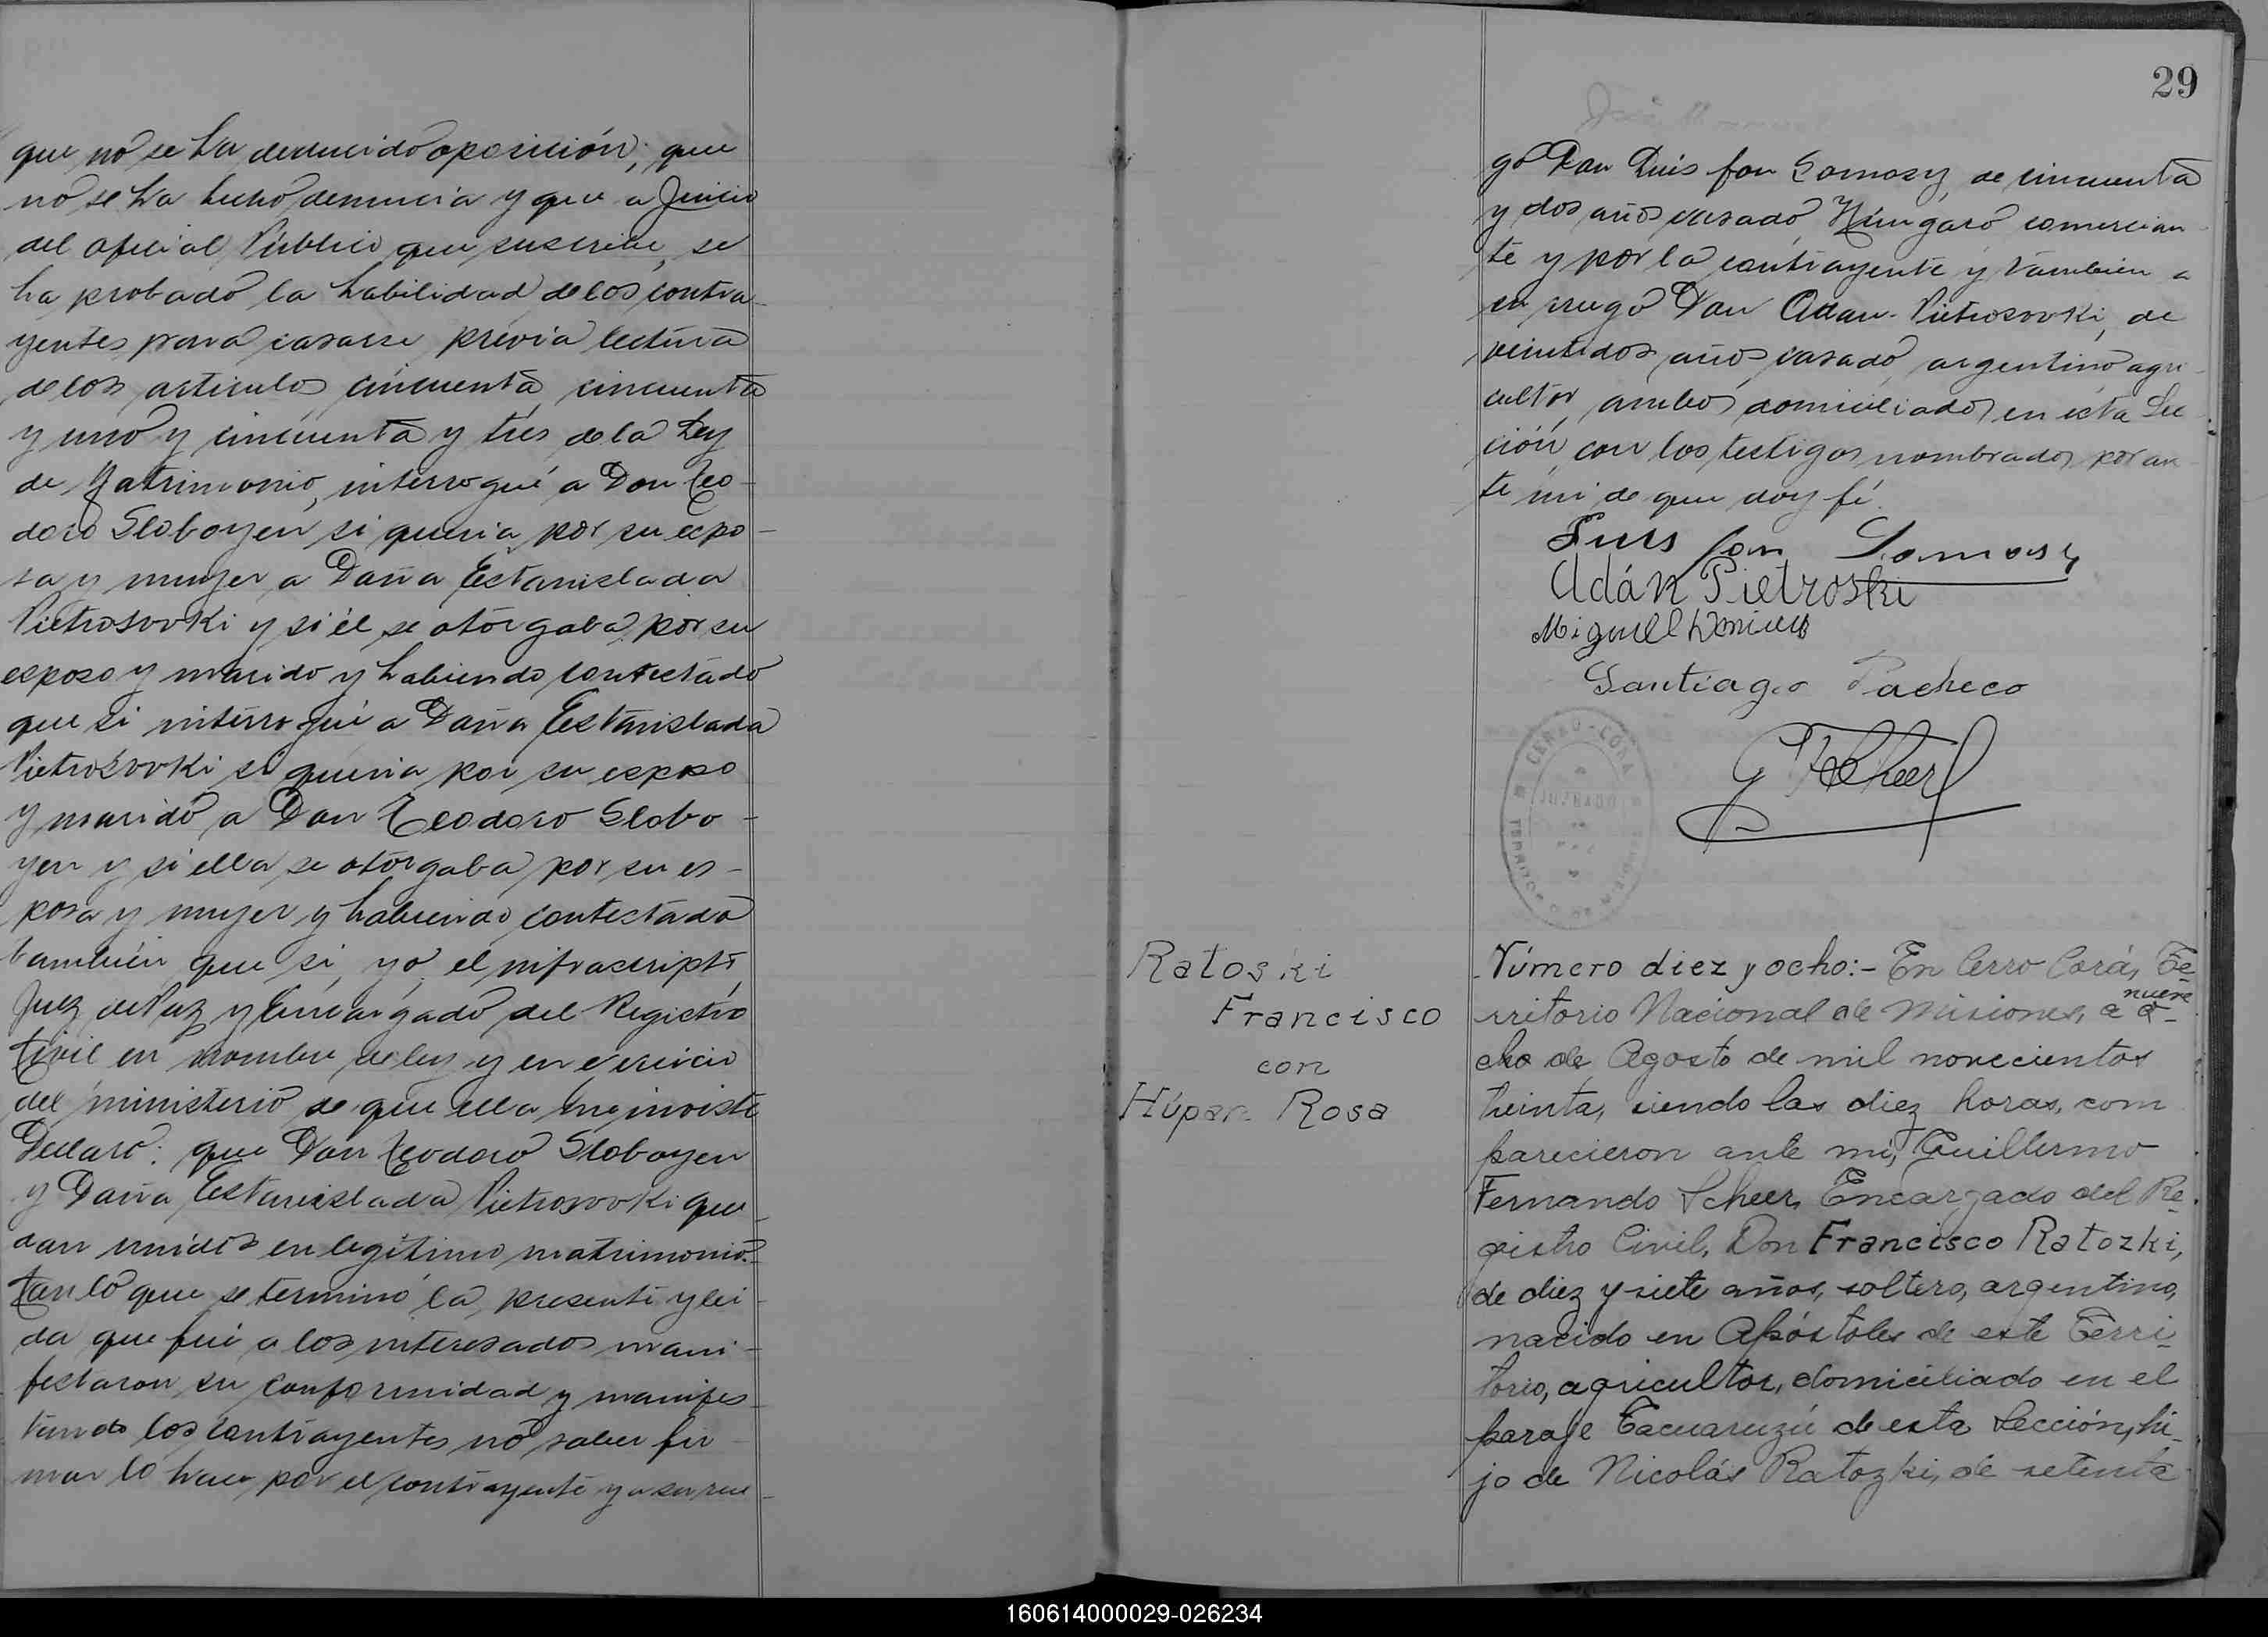 que no se ha deducido oposición; que
no se ha hecho denuncia y que a Juicio
del oficial Público que suscribe, se
ha probado la habilidad de los contra-
yentes para casarse previa lectura
de los articulos cincuenta, cincuenta
y uno y cincuenta y tres de la Ley
de Matrimonio, interrogué a Don Teo-
doro Sloboyen si queria por su espo-
sa y mujer a Doña Estanislada
Pietrosovki y si él se otorgaba por su
esposo y marido y habiendo contestado
que si interrogué a Doña Estanislada
Pietrosovki si queria por su esposo
y marido a Don Teodoro Slobo-
yen y si ella se otorgaba por su es-
posa y mujer y habiendo contestado
también que si, yo el infrascripto,
Juez de Paz y Encargado del Registro
Civil en nombre de ley y en ejercicio
del ministerio de que ella me inviste
Declaro: que Don Teodoro Sloboyen
y Doña Estanislada Pietrosovki que-
dan unidos en legítimo matrimonio.-
Con lo que se terminó la presente y lei-
da que fué a los interesados mani-
festaron su conformidad y manifes-
tando los contrayentes no saber fir-
mar lo hace por el contrayente y a su rue-
29
go Don Luis fon Somosy, de cincuenta
y dos años casado, Húngaro comercian-
te y por la contrayente y también a
su ruego Don Adan Pietrosovki, de
veintidos años casado, argentino agri-
cultor, ambos domiciliados en esta Sec
ción, con los testigos nombrados por an-
te mi de que doy fé.
Luis fon Somosy
Adán Pietroski
Miguel
Santiago Pacheco
G F Scheer
CERRO-CORA
Ratoski
Francisco
con
Húpan Rosa
Número diez y ocho:- En Cerro Corá, Te-
rritorio Nacional de Misiones, a o-
nueve
cho de Agosto de mil novecientos
treinta, siendo las diez horas, com
parecieron ante mi, Guillermo
Fernando Scheer, Encargado del Re-
gistro Civil, Don Francisco Ratozki,
de diez y siete años, soltero, argentino,
nacido en Apóstoles de este Terri-
torio, agricultor, domiciliado en el
paraje Tacuaruzú de esta Sección, hi-
jo de Nicolás Ratozki, de setenta
160614000029-026234